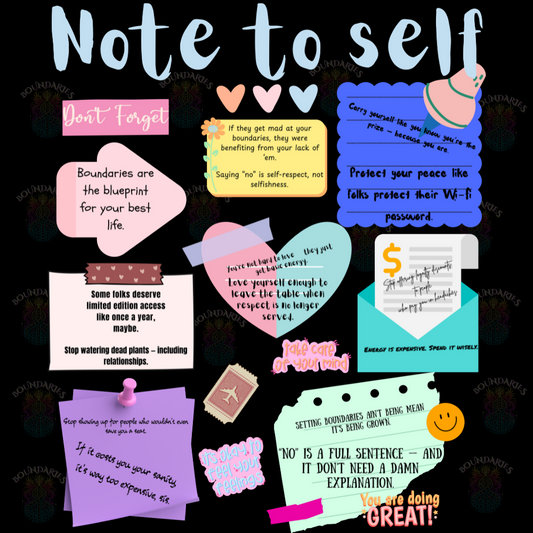 Note to self
Don't Forget
If they get mad at your
boundaries, they were
benefiting from your lack of
'em.
Saying "no" is self-respect, not
selfishness.
Carry yourself like you know you're the
prize — because you are.
Protect your peace like
folks protect their Wi-Fi
password.
Boundaries are
the blueprint
for your best
life.
You're not hard to love — they just
got basic energy.
Love yourself enough to
leave the table when
respect is no longer
served.
$
Stop offering loyalty discounts
to people
who pay you in headaches
Energy is expensive. Spend it wisely.
Some folks deserve
limited edition access
like once a year,
maybe.
Stop watering dead plants — including
relationships.
Take care
of your mind
Stop showing up for people who wouldn't even
save you a seat.
If it costs you your sanity,
it's way too expensive, sis.
It's okay to
feel your
feelings
Setting boundaries ain't being mean
it's being grown.
"No" is a full sentence — and
it don't need a damn
explanation.
You are doing
GREAT!
BOUNDARIES